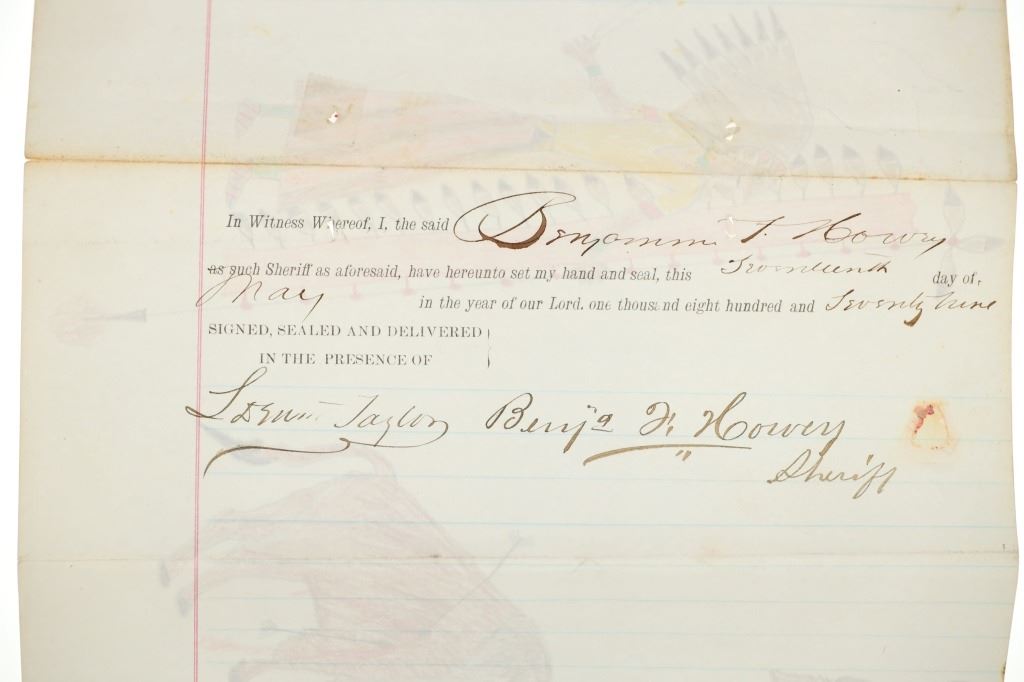 In Witness Whereof, I, the said Benjamin F. Howey
as such Sheriff as aforesaid, have hereunto set my hand and seal, this Seventeenth day of
May in the year of our Lord. one thousand eight hundred and Seventy nine
SIGNED, SEALED AND DELIVERED
IN THE PRESENCE OF
Taylor Benja F. Howey
Sheriff